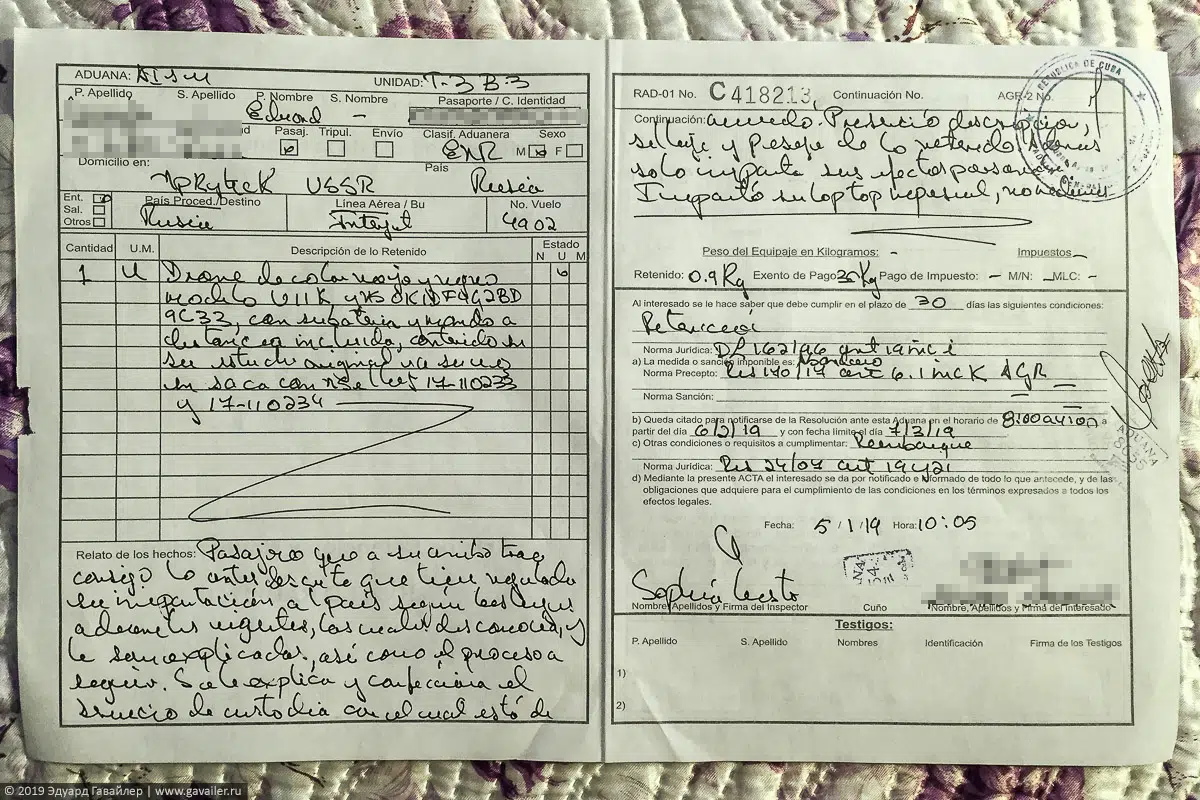 ADUANA: AISM UNIDAD: T-3 B-3
P. Apellido S. Apellido P. Nombre S. Nombre Pasaporte / C. Identidad
Eduard -
Pasaj. Tripul. Envío Clasif. Aduanera Sexo
ENR M F
Domicilio en: País
USSR Rusia
Ent. País Proced./Destino Línea Aérea / Bu No. Vuelo
Sal. Rusia Interjet 4902
Otros
Cantidad U.M. Descripción de lo Retenido Estado
N U M
1 U Drone de color rojo y negro
modelo U11K
9C33, con su bateria y mando a
distancia incluida, contenido en
su estuche original
en saca con 17-110233
y 17-110234
Relato de los hechos: Pasajero que a su arribo trae
consigo lo antes descrito que tiene regulado
su importación al país según las leyes
aduaneras vigentes, las cuales desconocía, y
le son explicadas, así como el proceso a
seguir. Se le explica y confecciona el
servicio de custodia con el cual está de
RAD-01 No. C 418213 Continuación No. AGR-2 No.
REPUBLICA DE CUBA
Continuación: acuerdo. Presenció descripción,
sellaje y pesaje de lo retenido. Además
solo importa sus efectos personales
Importó su laptop personal,
Peso del Equipaje en Kilogramos: - Impuestos -
Retenido: 0.9 Kg Exento de Pago Kg Pago de Impuesto: - M/N: - MLC: -
Al interesado se le hace saber que debe cumplir en el plazo de 30 días las siguientes condiciones:
Retención
Norma Jurídica: DL 162/96 art 19 inc i
a) La medida o sanción imponible es:
Norma Precepto: Res 170/17 art 6.1 inc K AGR
Norma Sanción:
b) Queda citado para notificarse de la Resolución ante esta Aduana en el horario de 8:00 a
partir del día 6/2/19 y con fecha límite el día 7/3/19
c) Otras condiciones o requisitos a cumplimentar: Reembarque
Norma Jurídica: Res 24/07 art 19 y 21
d) Mediante la presente ACTA el interesado se da por notificado e informado de todo lo que antecede, y de las
obligaciones que adquiere para el cumplimiento de las condiciones en los términos expresados a todos los
efectos legales.
Fecha: 5/1/19 Hora: 10:05
Nombre, Apellidos y Firma del Inspector Cuño Nombre, Apellidos y Firma del Interesado
Testigos:
P. Apellido S. Apellido Nombres Identificación Firma de los Testigos
1)
2)
ADUANA
© 2019 Эдуард Гавайлер | www.gavailer.ru